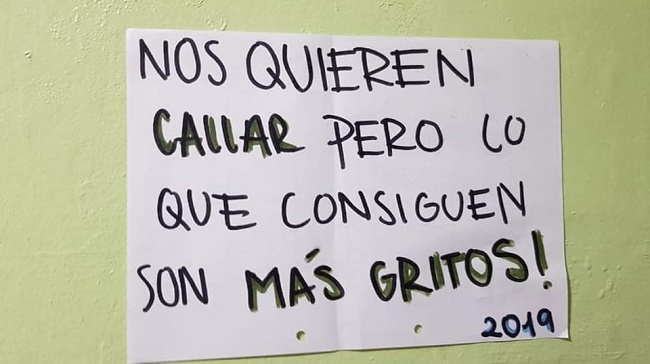 NOS QUIEREN
CALLAR PERO LO
QUE CONSIGUEN
SON MÁS GRITOS!
2019